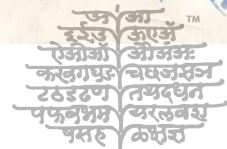 अ आ TM
इ ई उ ऊ ए ॲ
ऐ ओ औ ऑ अं अः
क ख ग घ ङ च छ ज झ ञ
ट ठ ड ढ ण त थ द ध न
प फ ब भ म य र ल व श
ष स ह ळ क्ष ज्ञ